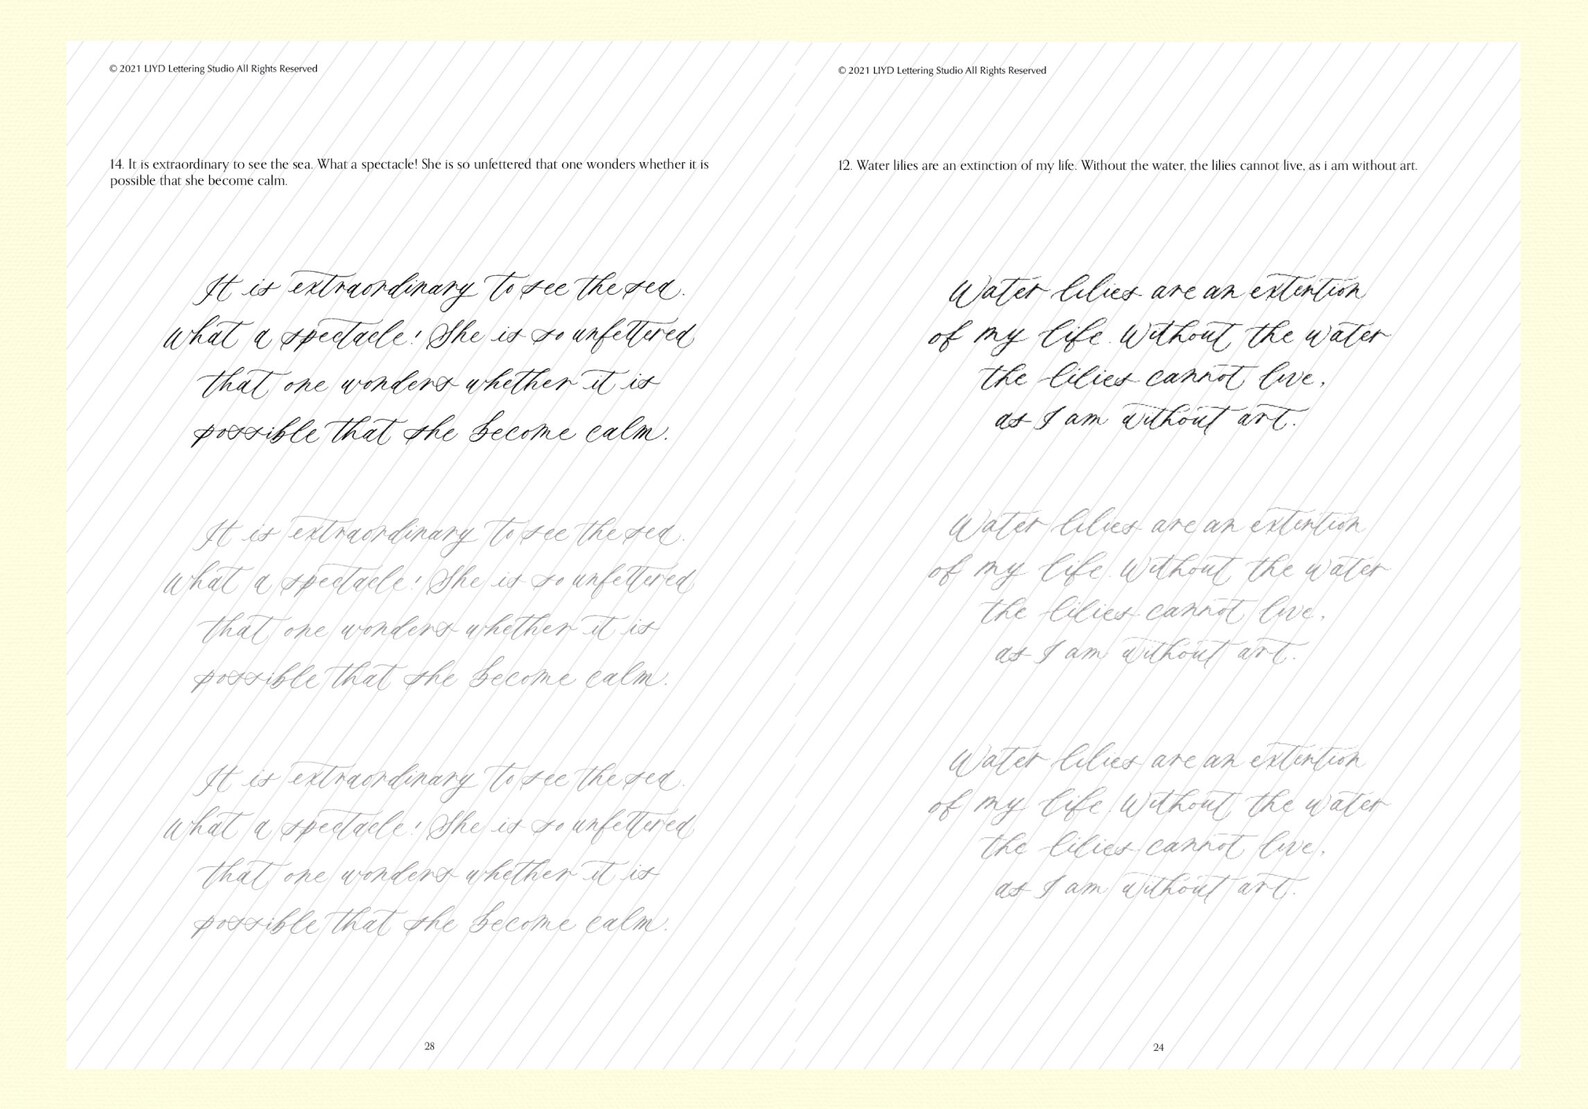 © 2021 LIYD Lettering Studio All Rights Reserved
14. It is extraordinary to see the sea. What a spectacle! She is so unfettered that one wonders whether it is
possible that she become calm.
It is extraordinary to see the sea.
What a spectacle! She is so unfettered
that one wonders whether it is
possible that she become calm.
It is extraordinary to see the sea.
What a spectacle! She is so unfettered
that one wonders whether it is
possible that she become calm.
It is extraordinary to see the sea.
What a spectacle! She is so unfettered
that one wonders whether it is
possible that she become calm.
28
© 2021 LIYD Lettering Studio All Rights Reserved
12. Water lilies are an extinction of my life. Without the water, the lilies cannot live, as i am without art.
Water lilies are an extintion
of my life. Without the water
the lilies cannot live,
as I am without art.
Water lilies are an extintion
of my life. Without the water
the lilies cannot live,
as I am without art.
Water lilies are an extintion
of my life. Without the water
the lilies cannot live,
as I am without art.
24